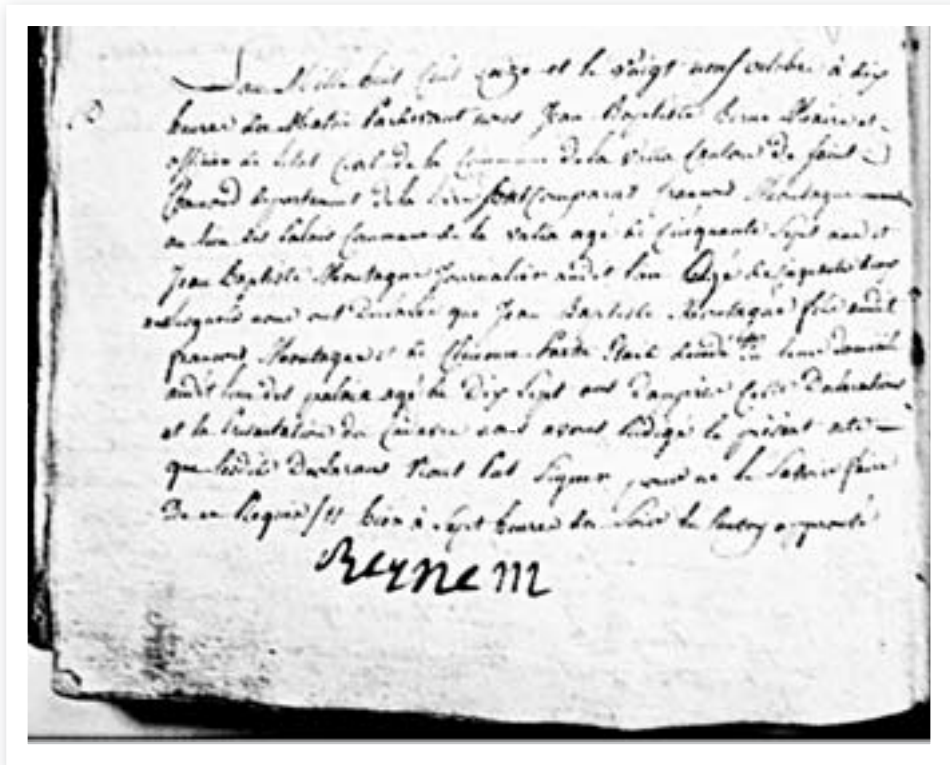 L'an Mille huit Cent onze et le Vingt neuf octobre à dix
heures du Matin Pardevant nous Jean Baptiste Maire et
officier de letat Civil de la Commune de la Valla Canton de saint
departement de la Loire sont Comparus François Montagne
au lieu des palais Commune de la valla agé de Cinquante Sept ans et
Jean Baptiste Montagne Journalier audit lieu Agé de
lesquels nous ont Declaré que Jean Baptiste Montagne fils audit
françois Montagne et de Clemence
audit lieu des palais agé de Dix Sept ans Daprès Cette Declaration
et la Presentation du Cadavre nous avons Redigé le présent acte
que lesdits Declarans N'ont Sut Signer pour ne le Savoir faire
De ce Requis // hier à Sept heures du Soir approuvé
Reyne m